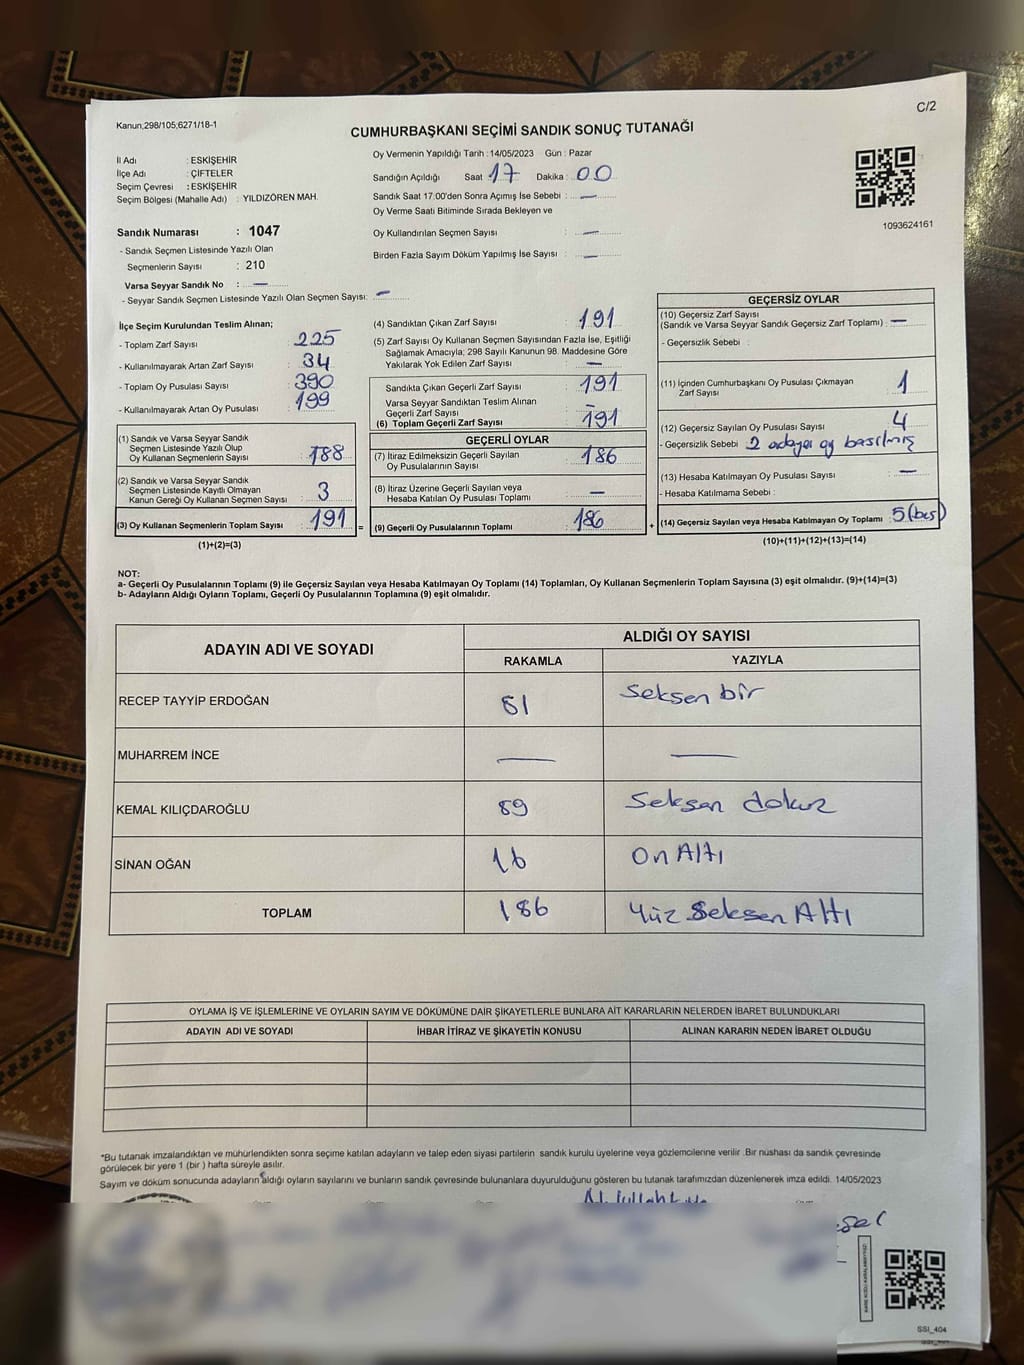 C/2
Kanun,298/105;6271/18-1
CUMHURBAŞKANI SEÇİMİ SANDIK SONUÇ TUTANAĞI
İl Adı : ESKİŞEHİR
İlçe Adı : ÇİFTELER
Seçim Çevresi : ESKİŞEHİR
Seçim Bölgesi (Mahalle Adı) : YILDIZÖREN MAH.
Oy Vermenin Yapıldığı Tarih : 14/05/2023 Gün : Pazar
Sandığın Açıldığı Saat 17 Dakika : 00
Sandık Saat 17:00'den Sonra Açmış İse Sebebi : —
Oy Verme Saati Bitiminde Sırada Bekleyen ve
Oy Kullandırılan Seçmen Sayısı : —
Birden Fazla Sayım Döküm Yapılmış İse Sayısı : —
1093624161
Sandık Numarası : 1047
- Sandık Seçmen Listesinde Yazılı Olan
Seçmenlerin Sayısı : 210
Varsa Seyyar Sandık No : —
- Seyyar Sandık Seçmen Listesinde Yazılı Olan Seçmen Sayısı: —
İlçe Seçim Kurulundan Teslim Alınan;
- Toplam Zarf Sayısı : 225
- Kullanılmayarak Artan Zarf Sayısı : 34
- Toplam Oy Pusulası Sayısı : 390
- Kullanılmayarak Artan Oy Pusulası : 199
(1) Sandık ve Varsa Seyyar Sandık
Seçmen Listesinde Yazılı Olup
Oy Kullanan Seçmenlerin Sayısı : 188
(2) Sandık ve Varsa Seyyar Sandık
Seçmen Listesinde Kayıtlı Olmayan
Kanun Gereği Oy Kullanan Seçmen Sayısı : 3
(3) Oy Kullanan Seçmenlerin Toplam Sayısı : 191 =
(1)+(2)=(3)
(4) Sandıktan Çıkan Zarf Sayısı : 191
(5) Zarf Sayısı Oy Kullanan Seçmen Sayısından Fazla İse, Eşitliği
Sağlamak Amacıyla; 298 Sayılı Kanunun 98. Maddesine Göre
Yakılarak Yok Edilen Zarf Sayısı : —
Sandıkta Çıkan Geçerli Zarf Sayısı : 191
Varsa Seyyar Sandıktan Teslim Alınan
Geçerli Zarf Sayısı : —
(6) Toplam Geçerli Zarf Sayısı : 191
GEÇERLİ OYLAR
(7) İtiraz Edilmeksizin Geçerli Sayılan
Oy Pusulalarının Sayısı : 186
(8) İtiraz Üzerine Geçerli Sayılan veya
Hesaba Katılan Oy Pusulası Toplamı : —
(9) Geçerli Oy Pusulalarının Toplamı : 186 +
GEÇERSİZ OYLAR
(10) Geçersiz Zarf Sayısı
(Sandık ve Varsa Seyyar Sandık Geçersiz Zarf Toplamı) : —
- Geçersizlik Sebebi :
(11) İçinden Cumhurbaşkanı Oy Pusulası Çıkmayan
Zarf Sayısı : 1
(12) Geçersiz Sayılan Oy Pusulası Sayısı : 4
- Geçersizlik Sebebi : 2 adaya oy basılmış
(13) Hesaba Katılmayan Oy Pusulası Sayısı : —
- Hesaba Katılmama Sebebi :
(14) Geçersiz Sayılan veya Hesaba Katılmayan Oy Toplamı : 5 (beş)
(10)+(11)+(12)+(13)=(14)
NOT:
a- Geçerli Oy Pusulalarının Toplamı (9) ile Geçersiz Sayılan veya Hesaba Katılmayan Oy Toplamı (14) Toplamları, Oy Kullanan Seçmenlerin Toplam Sayısına (3) eşit olmalıdır. (9)+(14)=(3)
b- Adayların Aldığı Oyların Toplamı, Geçerli Oy Pusulalarının Toplamına (9) eşit olmalıdır.
ADAYIN ADI VE SOYADI ALDIĞI OY SAYISI
RAKAMLA YAZIYLA
RECEP TAYYİP ERDOĞAN 81 Seksen bir
MUHARREM İNCE — —
KEMAL KILIÇDAROĞLU 89 Seksen dokuz
SİNAN OĞAN 16 On Altı
TOPLAM 186 Yüz Seksen Altı
OYLAMA İŞ VE İŞLEMLERİNE VE OYLARIN SAYIM VE DÖKÜMÜNE DAİR ŞİKAYETLERLE BUNLARA AİT KARARLARIN NELERDEN İBARET BULUNDUKLARI
ADAYIN ADI VE SOYADI İHBAR İTİRAZ VE ŞİKAYETİN KONUSU ALINAN KARARIN NEDEN İBARET OLDUĞU
*Bu tutanak imzalandıktan ve mühürlendikten sonra seçime katılan adayların ve talep eden siyasi partilerin sandık kurulu üyelerine veya gözlemcilerine verilir .Bir nüshası da sandık çevresinde
görülecek bir yere 1 (bir ) hafta süreyle asılır.
Sayım ve döküm sonucunda adayların aldığı oyların sayılarını ve bunların sandık çevresinde bulunanlara duyurulduğunu gösteren bu tutanak tarafımızdan düzenlenerek imza edildi. 14/05/2023
SSI_404